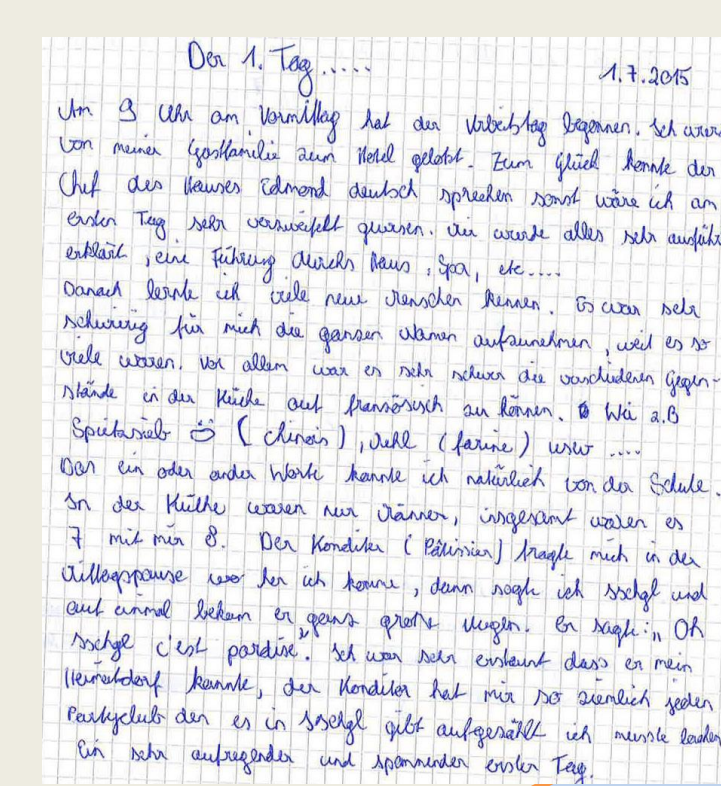 Der 1. Tag.....
1.7.2015
Um 9 Uhr am Vormittag hat der Arbeitstag begonnen. Ich wurde
von meiner Gastfamilie zum Hotel gelotst. Zum Glück konnte der
Chef des Hauses Edmond deutsch sprechen sonst wäre ich am
ersten Tag sehr verzweifelt gewesen. Mir wurde alles sehr ausführ
erklärt, eine Führung durchs Haus, Spa, etc....
Danach lernte ich viele neue Menschen kennen. Es war sehr
schwierig für mich die ganzen Namen aufzunehmen, weil es so
viele waren. Vor allem war es sehr schwer die verschiedenen Gegen-
stände in der Küche auf französisch zu können. Wie z.B
Spitzsieb (Chinois), Mehl (farine) usw ....
Das ein oder ander Wort kannte ich natürlich von der Schule.
In der Küche waren nur Männer, insgesamt waren es
7 mit mir 8. Der Konditor (Pâtissier) fragte mich in der
Mittagspause wo her ich komme, dann sagte ich Ischgl und
auf einmal bekam er ganz große Augen. Er sagte: „Oh
Ischgl c'est pardise". Ich war sehr erstaunt dass er mein
Heimatdorf kannte, der Konditor hat mir so ziemlich jeden
Partyclub den es in Ischgl gibt aufgezählt ich musste lachen
Ein sehr aufregender und spannender erster Tag.